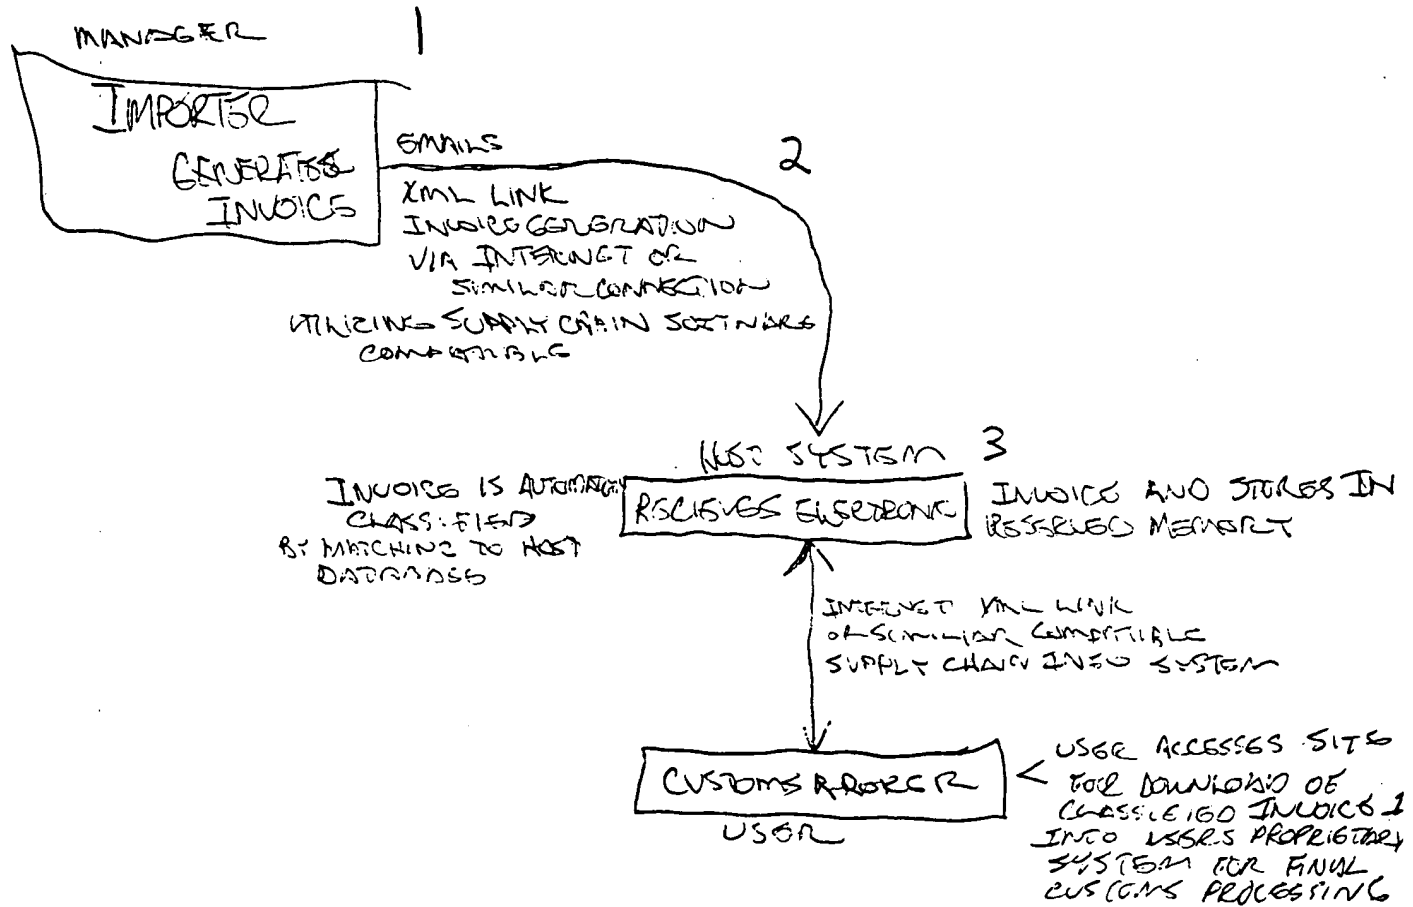 MANAGER
1
IMPORTER
GENERATES
INVOICE
EMAILS
2
XML LINK
INVOICE GENERATION
VIA INTERNET OR
SIMILAR CONNECTION
UTILIZING SUPPLY CHAIN SOFTWARE
COMPATIBLE
HOST SYSTEM
3
INVOICE IS AUTOMATICALLY
CLASSIFIED
BY MATCHING TO HOST
DATABASES
RECIEVES ELECTRONIC
INVOICE AND STORES IN
RESERVED MEMORY
INTERNET XML LINK
OR SIMILIAR COMPATIBLE
SUPPLY CHAIN INFO SYSTEM
CUSTOMS BROKER
USER
USER ACCESSES SITE
FOR DOWNLOAD OF
CLASSIFIED INVOICE 1
INTO USERS PROPRIETARY
SYSTEM FOR FINAL
CUSTOMS PROCESSING